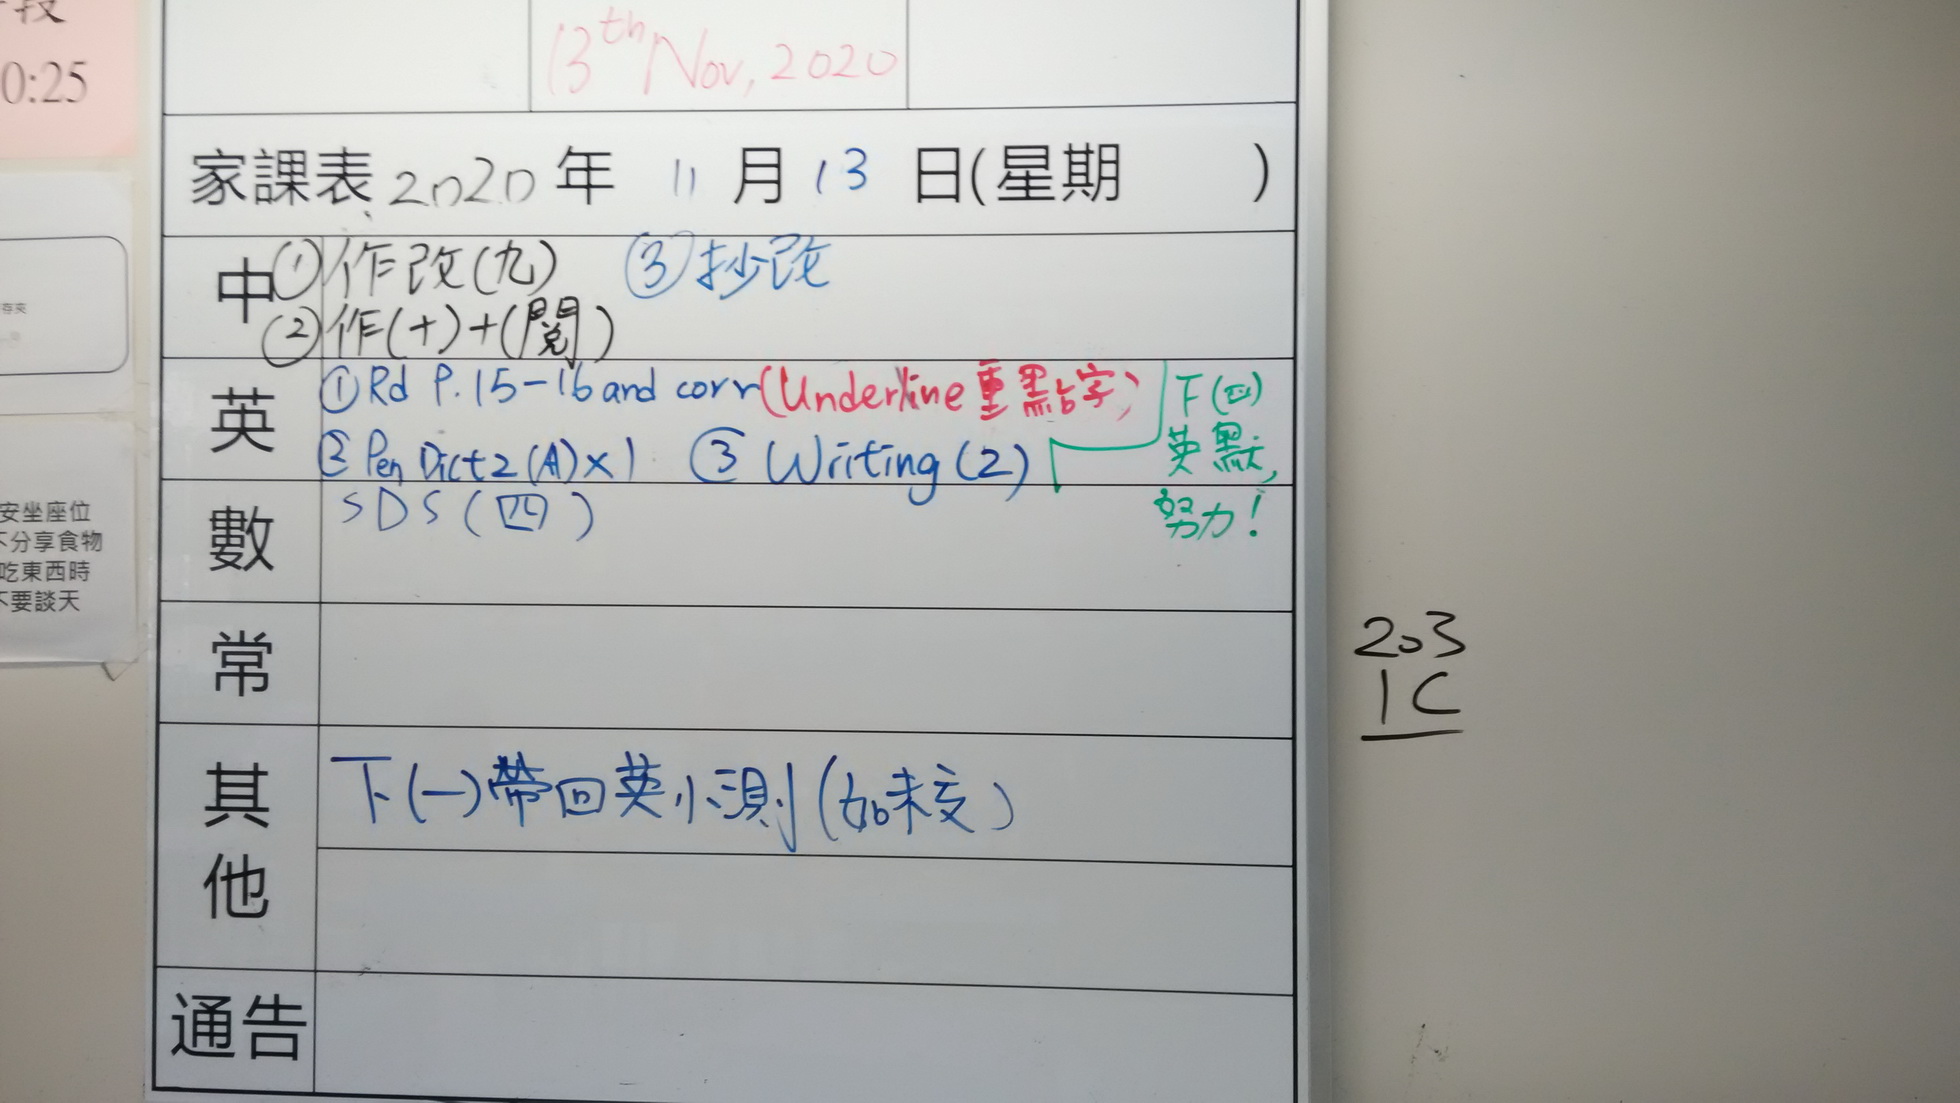 0:25
13th Nov, 2020
家課表 2020 年 11 月 13 日(星期 )
中 ① 作改(九) ③ 抄改
② 作(十)+(閱)
英 ① Rd P.15-16 and corr (Underline 重點字)
② Pen Dict 2 (A) x 1 ③ Writing (2)
下(四)
英默,
努力!
數 SDS (四)
常
其他 下(一)帶回英小測(如未交)
通告
安坐座位
不分享食物
吃東西時
不要談天
203
1C